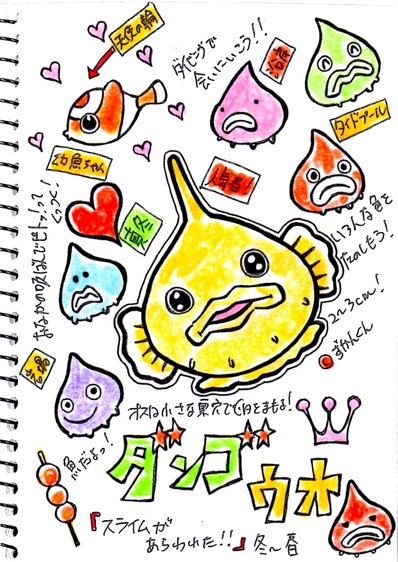 天使の輪
ダイビングで
会いにいこう!!
タイドプール
幼魚ちゃん
人気者!
いろんな色を
たのしもう!
2〜3cm!
ずかんくん
おなかの吸ばんでピトッ!って
くっつく!
オスは小さな巣穴で卵をまもる!
魚だよっ!
ダンゴ
ウオ
『スライムが
あらわれた!!』冬〜春